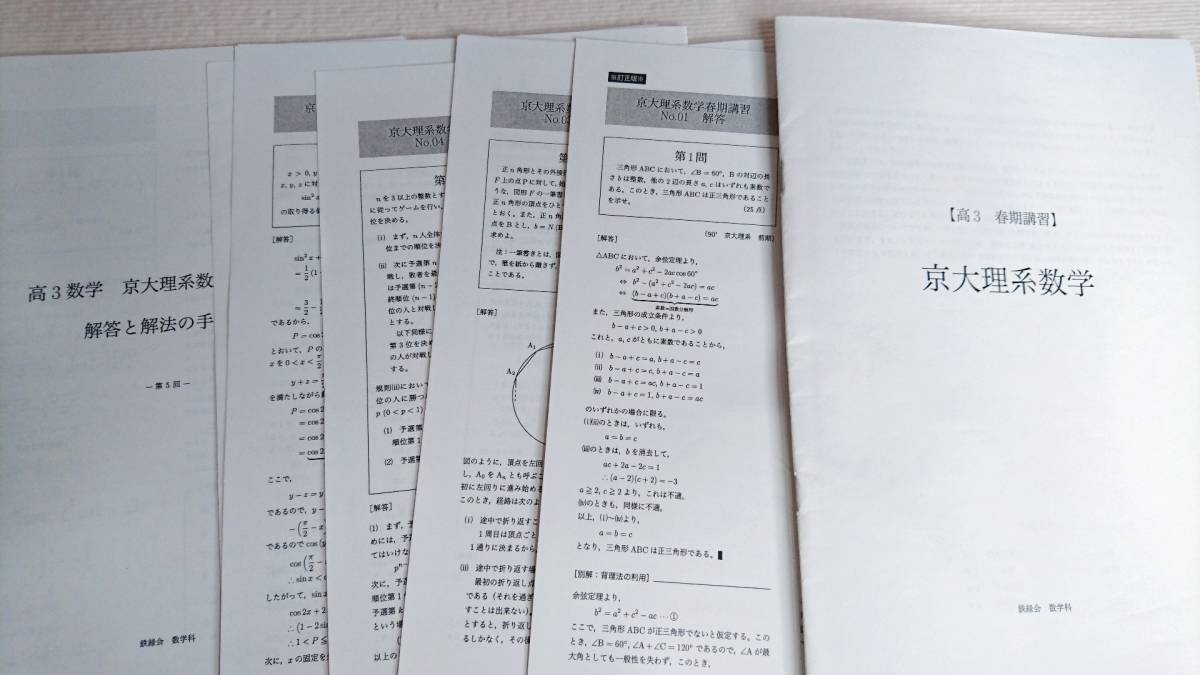 高3数学 京大理系数
解答と解法の手
－第5回－
鉄緑会 数学科
京
x > 0, y
x, y, z に対
sin²
の取り得る
[解答]
sin² x +
であるから,
P = cos
とおいて, P の
y + z =
を満たしながら
P = cos 2
= cos 2
= cos 2
ここで,
y − z = y
であるので, y −
であるので cos (y
∴ sin x <
したがって, sin
cos 2x + 2
∴ (1 − 2 sin
∴ 1 < P ≦
次に, x の固定を
京大理系数学
No.04
第
n を3以上の整数とす
に従ってゲームを行い,
位を決める.
(i) まず, n 人全体
位までの順位を決
(ii) 次に予選第 n
戦し, 敗者を最
は予選第 (n − 2
終順位 (n − 1)
位の人と対戦し
とする.
以下同様に
第3位を決め
の人が対戦し
する.
規則(ii)において
位の人に勝つ
p (0 < p < 1)
(1) 予選第
順位第1
(2) 予選第
[解答]
(1) まず, 予
めには, 予
てはいけな
次に, 予選
順位第1
予選第
という場
以上の
京大理系数
No.0
第
正 n 角形とその外接
F 上の点 P に対して, 始
うな, 図形 F の一筆書
正 n 角形の頂点をひと
とおく. また, 正 n 角
点を B とし, b = N (B
求めよ.
注：一筆書きとは,
で, 筆を紙から離さず,
ことである.
[解答]
A₁
A₂
図のように, 頂点を左回
し, A₀ を Aₙ とも呼ぶこ
初に左回りに進み始める
このとき, 経路は次のよ
(i) 途中で折り返すこ
1周目は頂点ごと
1通りに決まるから
(ii) 途中で折り返す場
最初の折り返し点
である (それを過ぎ
すことは出来ない).
とすると, 折り返し
るしかなく, その後
※訂正版※
京大理系数学春期講習
No.01 解答
第1問
三角形 ABC において, ∠B = 60°, B の対辺の長
さ b は整数, 他の2辺の長さ a, c はいずれも素数で
ある. このとき, 三角形 ABC は正三角形であること
を示せ.
(25点)
(90' 京大理系 前期)
[解答]
△ABC において, 余弦定理より,
b² = a² + c² − 2ac cos 60°
⇔ b² − (a² + c² − 2ac) = ac
⇔ (b − a + c)(b + a − c) = ac
素数→因数分解形
また, 三角形の成立条件より,
b − a + c > 0, b + a − c > 0
これと, a, c がともに素数であることから,
(i) b − a + c = a, b + a − c = c
(ii) b − a + c = c, b + a − c = a
(iii) b − a + c = ac, b + a − c = 1
(iv) b − a + c = 1, b + a − c = ac
のいずれかの場合に限る.
(i)(ii)のときは, いずれも,
a = b = c
(iii)のときは, b を消去して,
ac + 2a − 2c = 1
∴ (a − 2)(c + 2) = −3
a ≧ 2, c ≧ 2 より, これは不適.
(iv)のときも, 同様に不適.
以上, (i)～(iv)より,
a = b = c
となり, 三角形 ABC は正三角形である. ▮
[別解：背理法の利用]
余弦定理より,
b² = a² + c² − ac …①
ここで, 三角形 ABC が正三角形でないと仮定する. この
とき, ∠B = 60°, ∠A + ∠C = 120° であるので, ∠A が最
大角としても一般性を失わず, このとき,
【高3 春期講習】
京大理系数学
鉄緑会 数学科